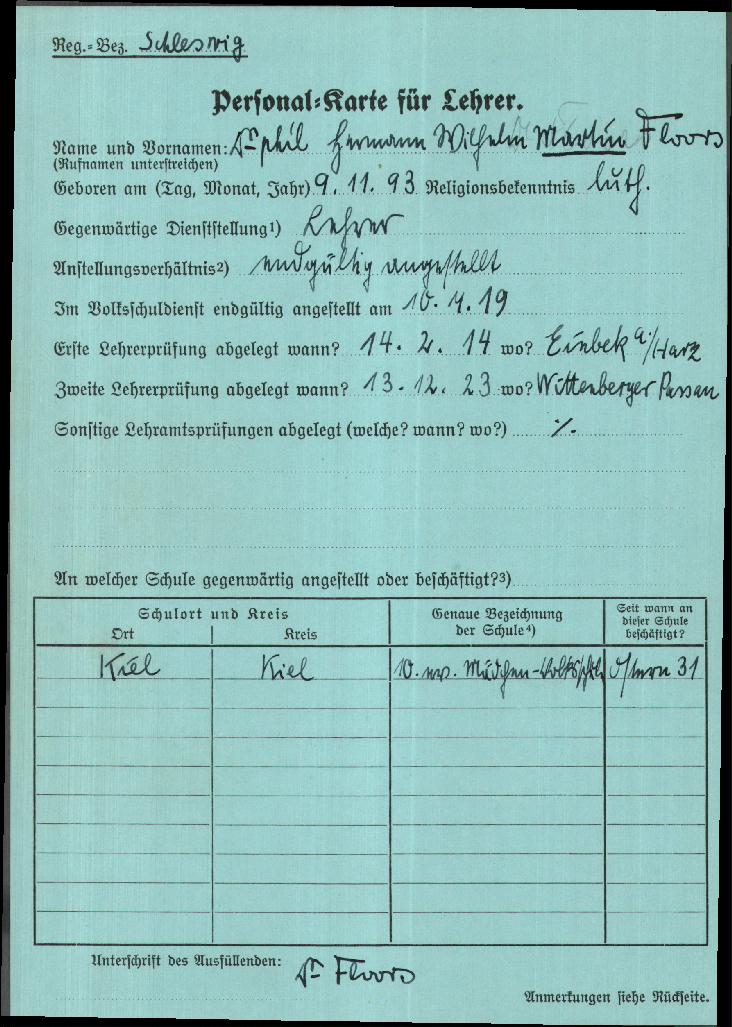 Reg.=Bez. Schleswig
Personal=Karte für Lehrer.
Name und Vornamen: Dr phil Hermann Wilhelm Martin Floors
(Rufnamen unterstreichen)
Geboren am (Tag, Monat, Jahr) 9. 11. 93 Religionsbekenntnis luth.
Gegenwärtige Dienststellung1) Lehrer
Anstellungsverhältnis2) endgültig angestellt
Im Volksschuldienst endgültig angestellt am 10. 4. 19
Erste Lehrerprüfung abgelegt wann? 14. 2. 14 wo? Einbek a/Harz
Zweite Lehrerprüfung abgelegt wann? 13. 12. 23 wo? Wittenberger Passau
Sonstige Lehramtsprüfungen abgelegt (welche? wann? wo?) ./.
An welcher Schule gegenwärtig angestellt oder beschäftigt?3)
Schulort und Kreis
Ort
Kreis
Genaue Bezeichnung
der Schule4)
Seit wann an
dieser Schule
beschäftigt?
Kiel Kiel 10. ev. Mädchen-Volksschl Ostern 31
Unterschrift des Ausfüllenden: Dr Floors
Anmerkungen siehe Rückseite.